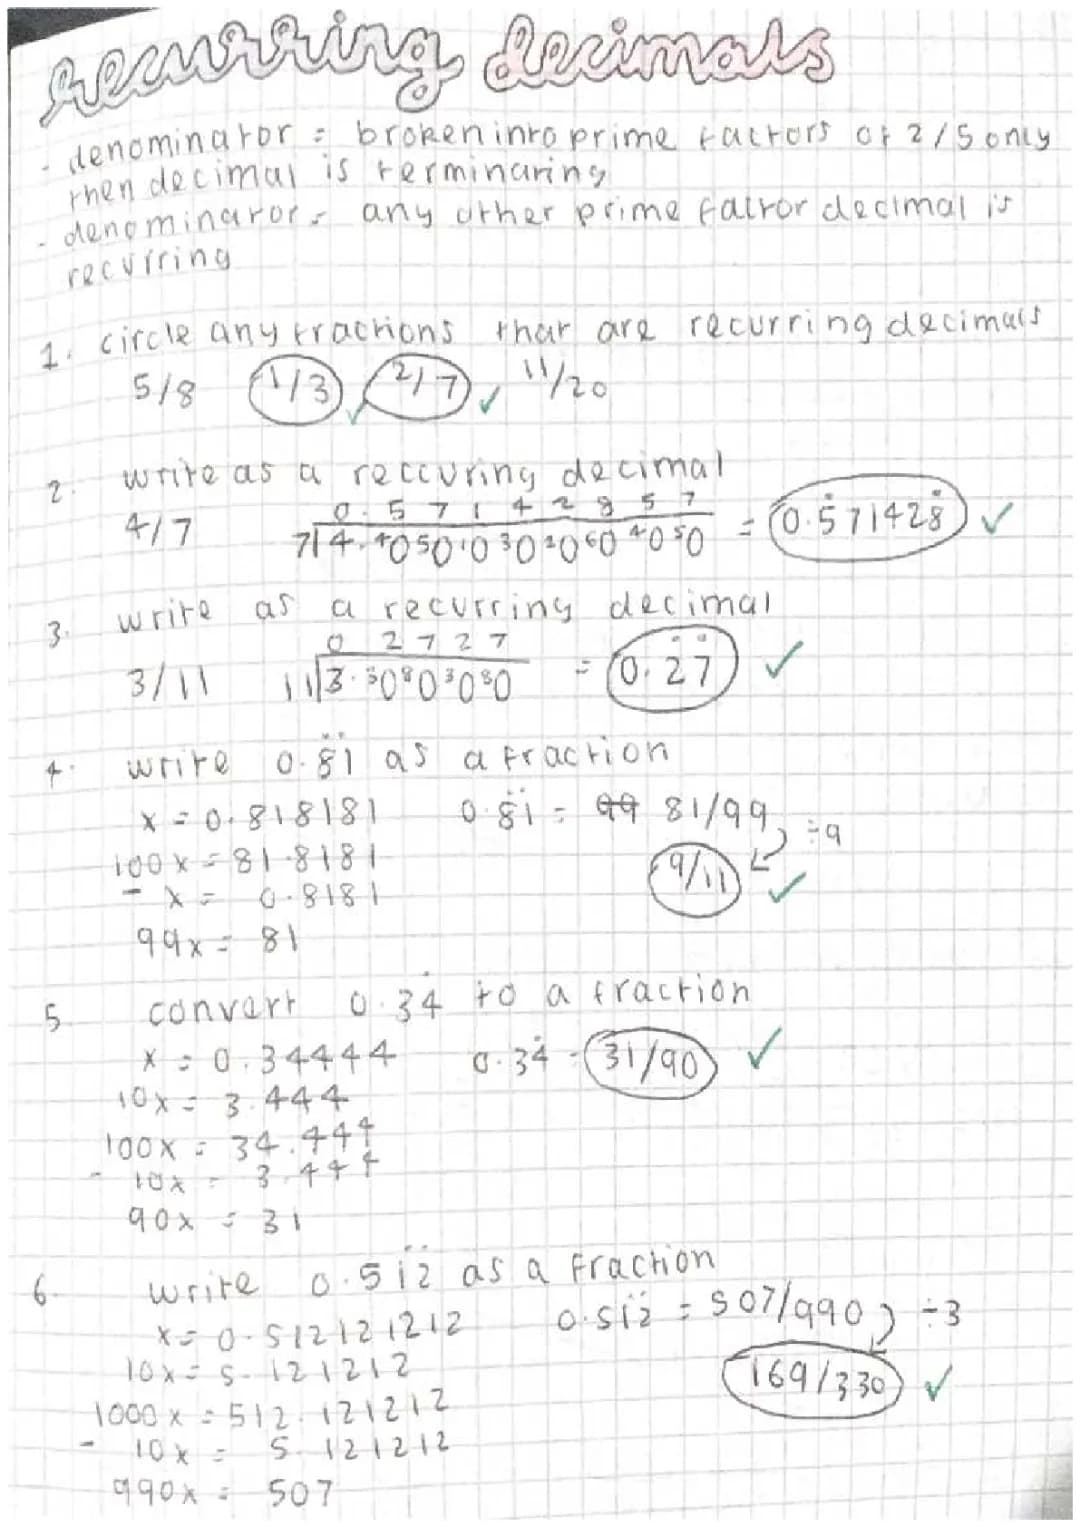 recurring decimals
- denominator = broken into prime factors of 2/5 only
then decimal is terminating
- denominator = any other prime factor decimal is
recurring
1. circle any fractions that are recurring decimals
5/8 1/3 ✓ 2/7 ✓ 11/20 ✓
2. write as a reccuring decimal
0.57142857
4/7 7|4.⁴0⁵0¹0³0²0⁶0⁴0⁵0 = 0.5̇71428̇ ✓
3. write as a recurring decimal
0 2727
3/11 11|3.³0⁸0³0⁸0 = 0.2̇7̇ ✓
4. write 0.8̇1̇ as a fraction
x = 0.818181 0.8̇1̇ = 99 81/99 ÷9
100x = 81.8181 9/11 ✓
- x = 0.8181
99x = 81
5. convert 0.34̇ to a fraction
x = 0.34444 0.34̇ = 31/90 ✓
10x = 3.444
100x = 34.444
- 10x = 3.444
90x = 31
6. write 0.51̇2̇ as a fraction
x = 0.512121212 0.51̇2̇ = 507/990 ÷3
10x = 5.121212 169/330 ✓
1000x = 512.121212
- 10x = 5.121212
990x = 507